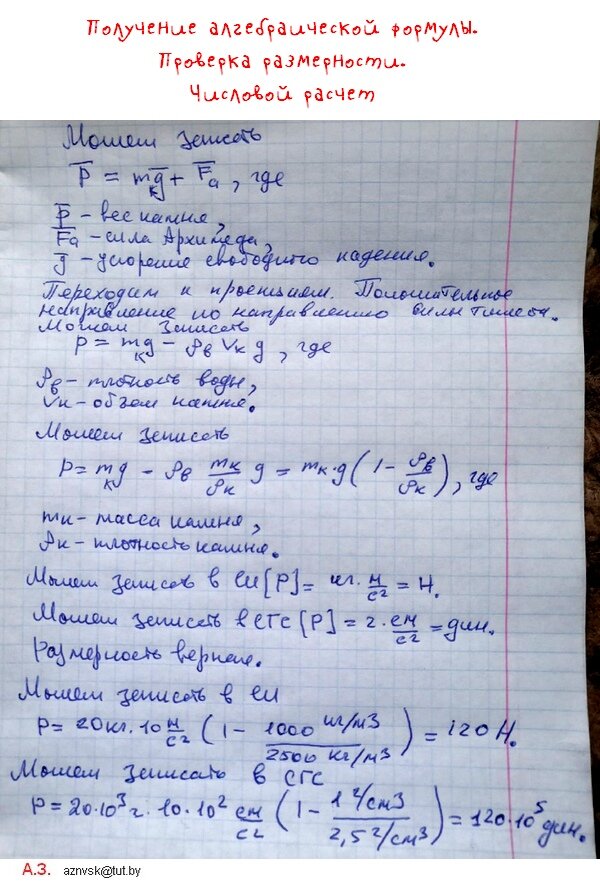 Получение алгебраической формулы.
Проверка размерности.
Числовой расчет
Можем записать
P̅ = mₖg̅ + F̅ₐ, где
P̅ – вес камня,
F̅ₐ – сила Архимеда,
g̅ – ускорение свободного падения.
Переходим к проекциям. Положительное
направление по направлению силы тяжести.
Можем записать
P = mₖg – ρв Vк g, где
ρв – плотность воды,
Vк – объем камня.
Можем записать
P = mₖg – ρв mк/ρк g = mк·g (1 – ρв/ρк), где
mк – масса камня,
ρк – плотность камня.
Можем записать в СИ [P] = кг. м/с2 = Н.
Можем записать в СГС [P] = г. см/с2 = дин.
Размерность верная.
Можем записать в СИ
P = 20кг. 10 м/с2 (1 – 1000 кг/м3 / 2500 кг/м3) = 120 Н.
Можем записать в СГС
P = 20·10³ г. 10·10² см/с2 (1 – 1 г/см3 / 2,5 г/см3) = 120·10⁵ дин.
А.З. aznvsk@tut.by